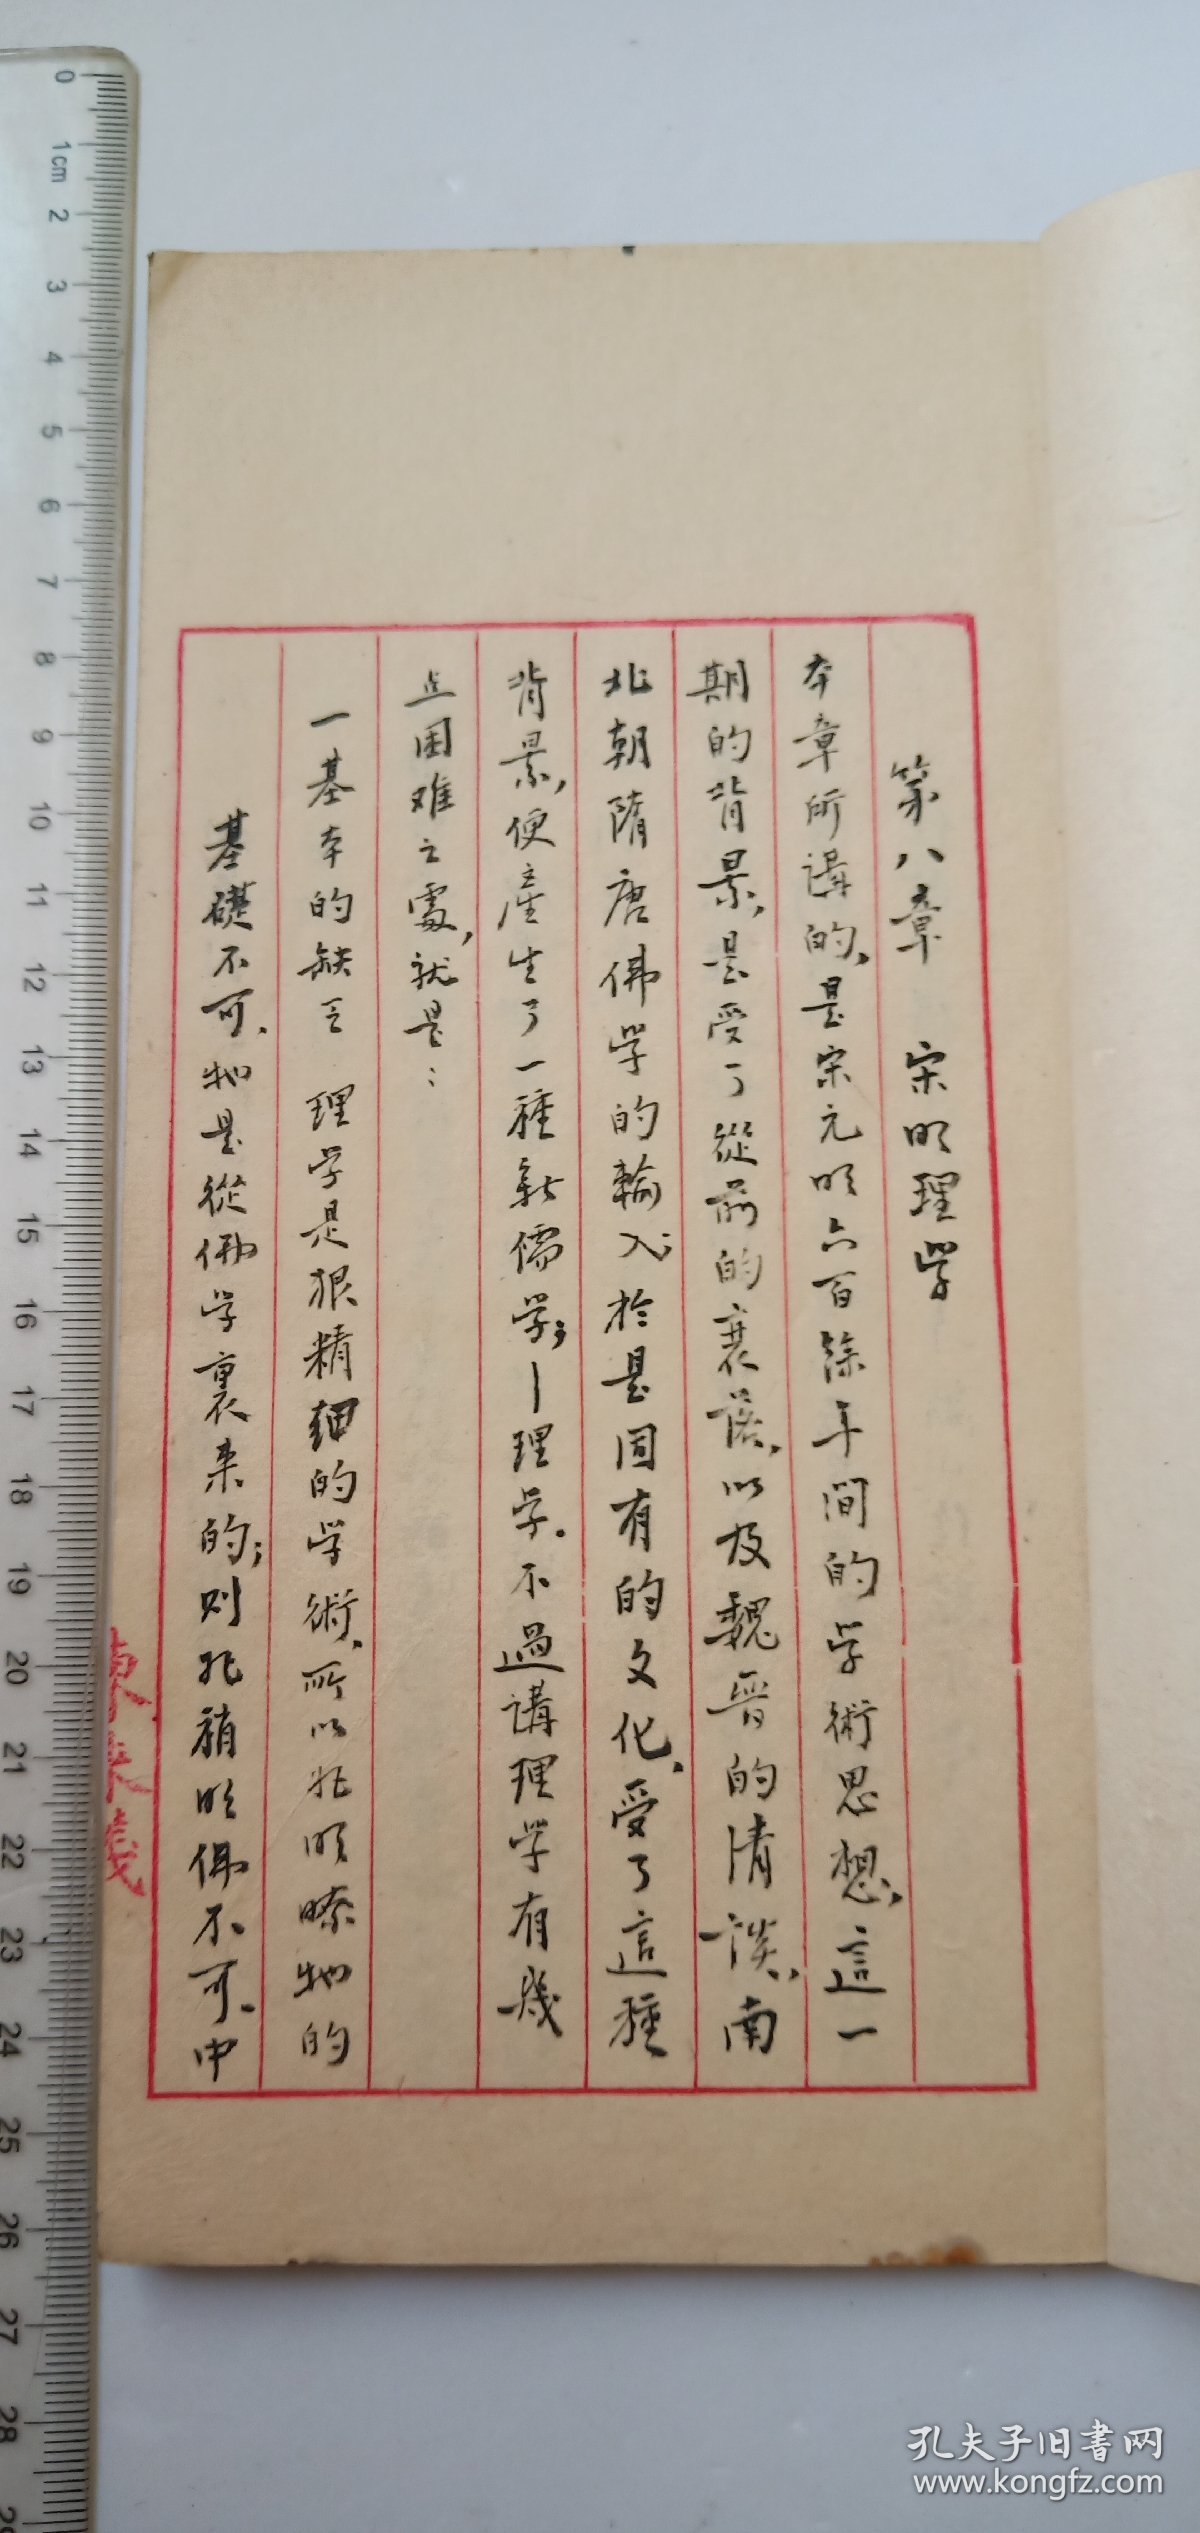 第八章　宋明理學
本章所講的,是宋元明六百餘年間的学術思想,這一
期的背景,是受了從前的衰落,以及魏晋的清談,南
北朝隋唐佛学的輸入;於是固有的文化,受了這種
背景,便產生了一種新儒学;—理学.不過講理学有幾
点困难之處,就是:
一基本的缺乏　理学是狠精細的学術,所以非明瞭牠的
基礎不可,牠是從佛学裏来的;则非稍明佛不可,中
0
1cm
2
3
4
5
6
7
8
9
10
11
12
13
14
15
16
17
18
19
20
21
22
23
24
25
26
27
28
孔夫子旧书网
www.kongfz.com